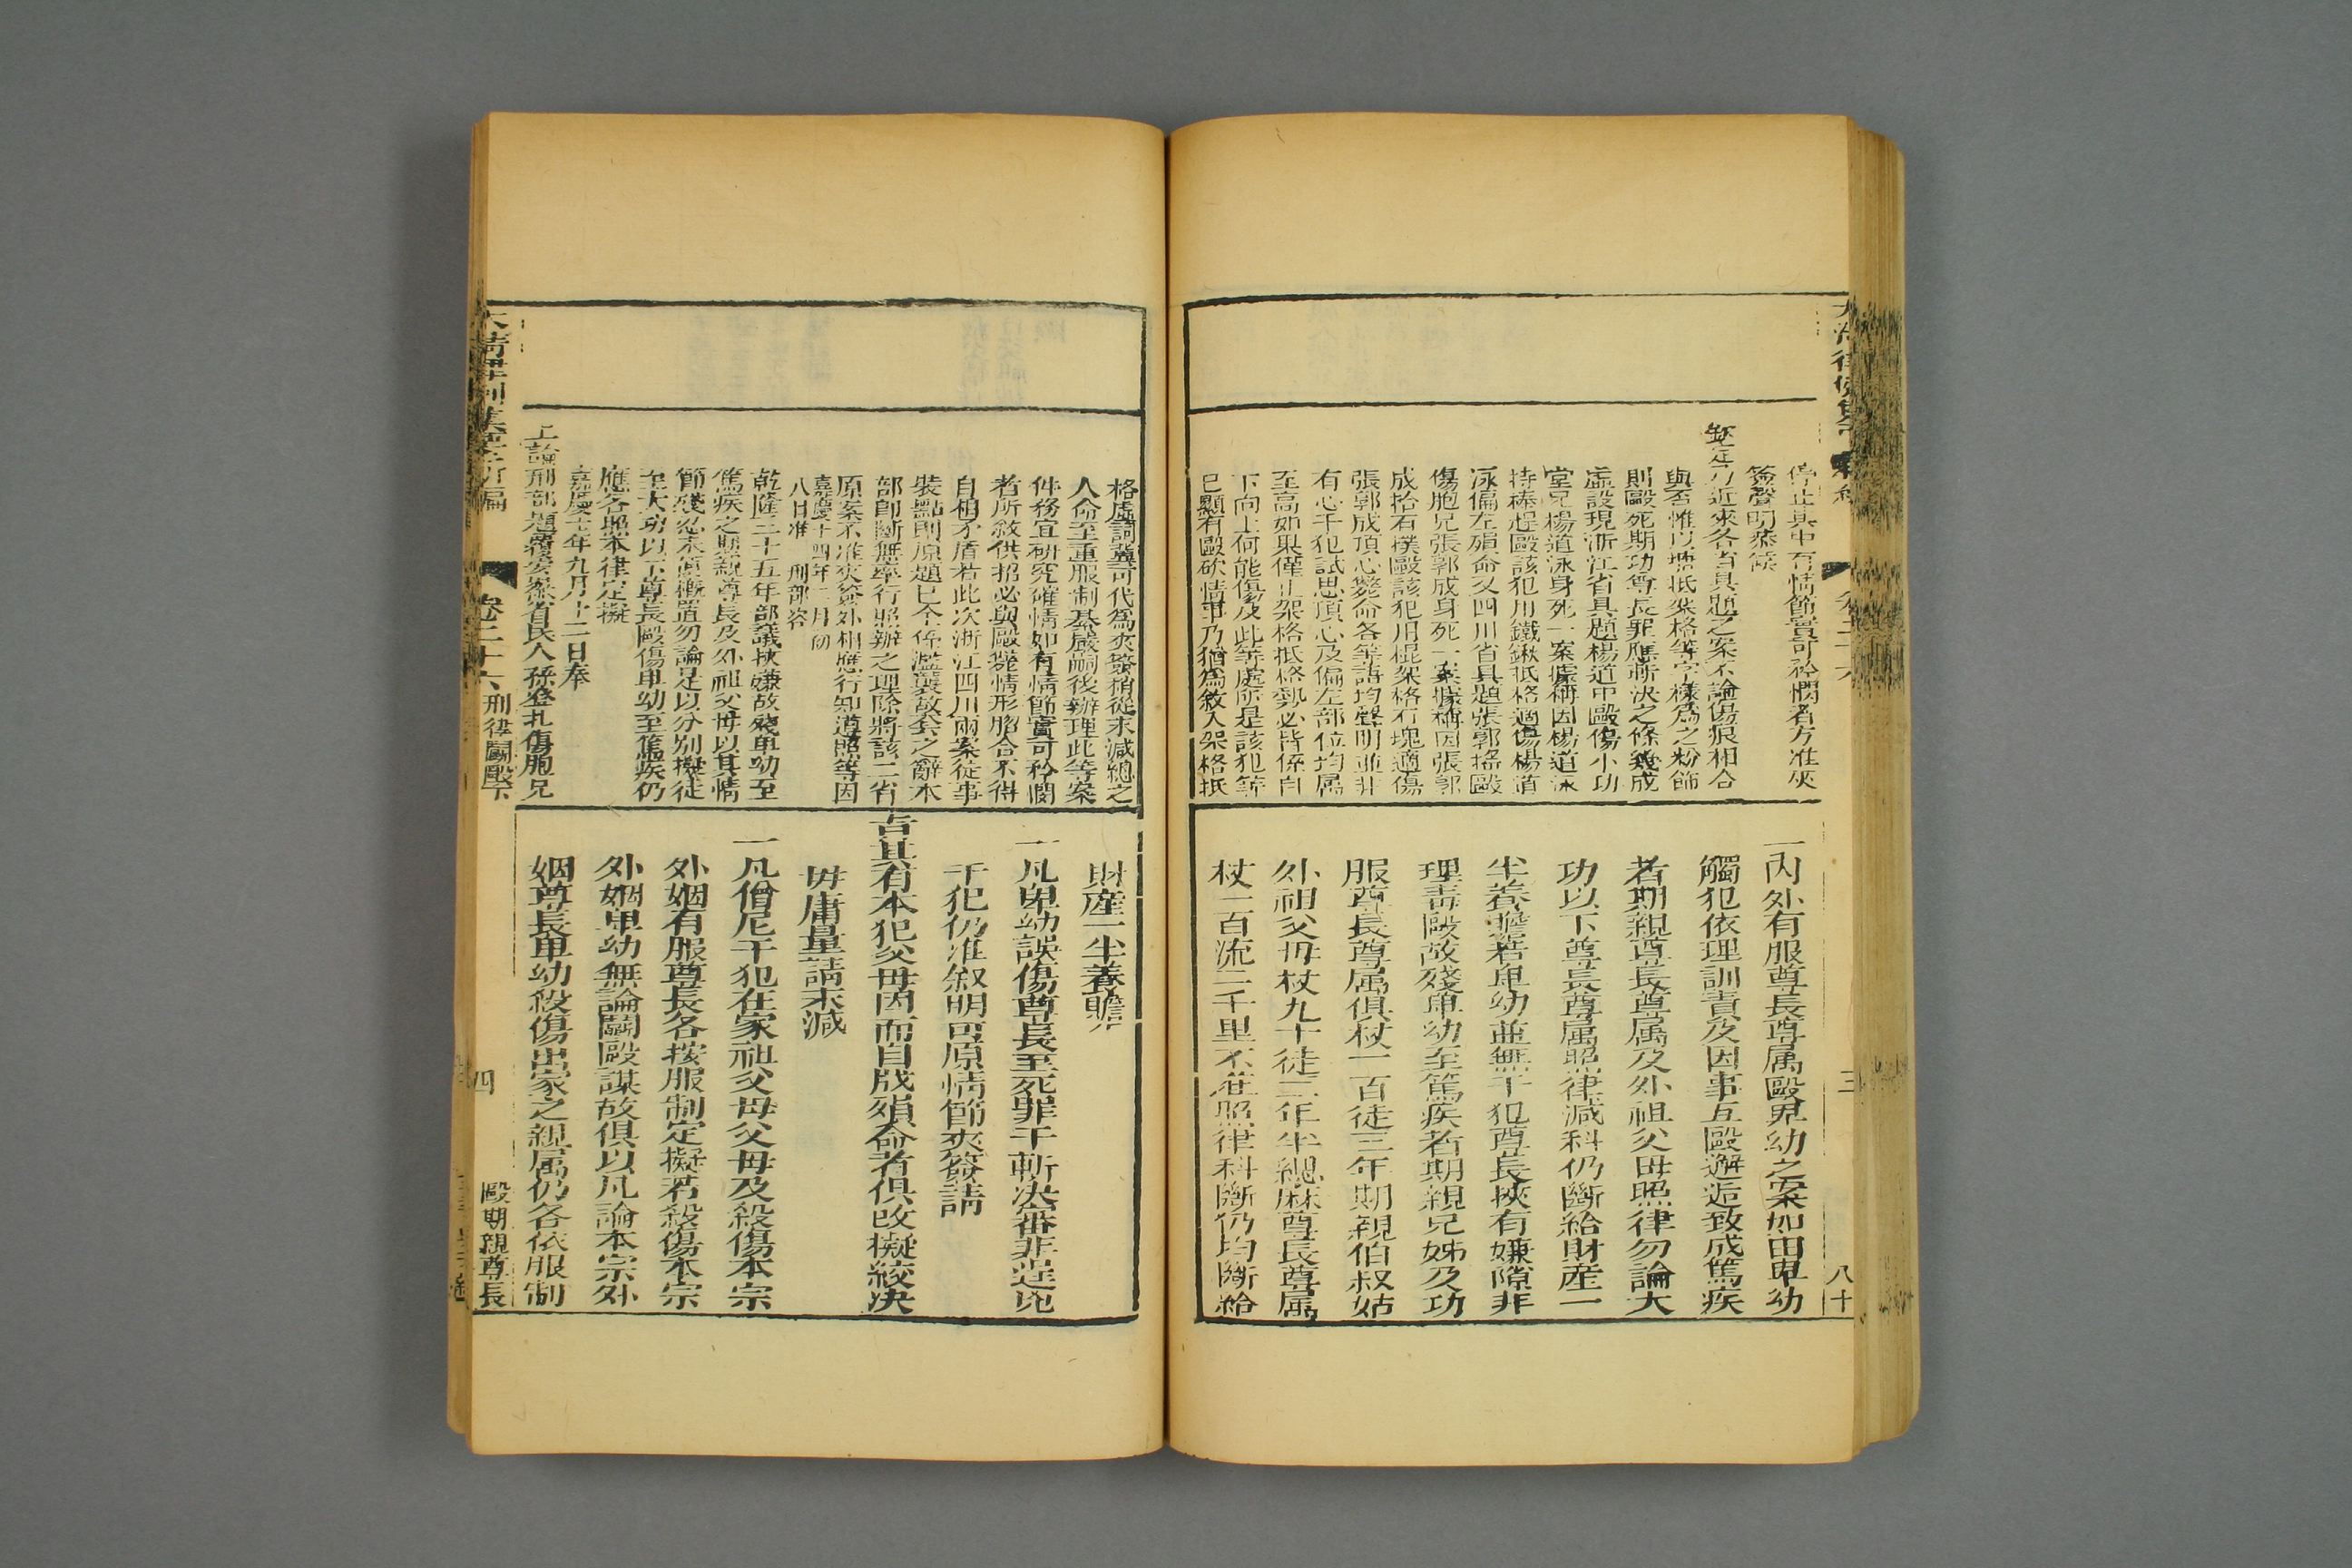 停止其中有情節實可矜憫者方准夾
簽聲明恭候
欽定乃近來各省具題之案不論傷痕相合
與否惟以墊抵架格等字樣為之粉飾
則毆死期功尊長罪應斬決之條幾成
虛設現浙江省具題楊道中毆傷小功
堂兄楊道泳身死一案據稱因楊道泳
持棒趕毆該犯用鐵鍬抵格適傷楊道
泳偏左殞命又四川省具題張郭搖毆
傷胞兄張郭成身死一案據稱因張郭
成拾石撲毆該犯用棍架格石塊適傷
張郭成頂心斃命各等語均聲明並非
有心干犯試思頂心及偏左部位均属
至高如果僅止架格抵格勢必皆係自
下向上何能傷及此等處所是該犯等
已顯有毆砍情事乃猶為敘入架格抵
一內外有服尊長尊属毆卑幼之案如由卑幼
觸犯依理訓責及因事互毆邂逅致成篤疾
者期親尊長尊属及外祖父毋照律勿論大
功以下尊長尊属照律減科仍斷給財產一
半養贍若卑幼並無干犯尊長挾有嫌隙非
理毒毆故殘卑幼至篤疾者期親兄姊及功
服尊長尊属俱杖一百徒三年期親伯叔姑
外祖父毋杖九十徒二年半緦麻尊長尊属
杖一百流三千里不准照律科斷仍均斷給
格虛詞冀可代為夾簽稍從末減總之
人命至重服制綦嚴嗣後辦理此等案
件務宜研究確情如有情節實可矜憫
者所敘供招必與毆斃情形脗合不得
自相矛盾若此次浙江四川兩案從事
裝點則原題已全係濫襲故套之辭本
部即斷無率行照辦之理除將該二省
原案不准夾簽外相應行知遵照等因
嘉慶十四年二月初
八日准 刑部咨
乾隆三十五年部議挾嫌故殘卑幼至
篤疾之期親尊長及外祖父母以其情
節殘忍未便概置勿論足以分別擬徒
至大功以下尊長毆傷卑幼至篤疾仍
應各照本律定擬
嘉慶七年九月十二日奉
上諭刑部題覆安徽省民人孫登扎傷胞兄
財產一半養贍
一凡卑幼誤傷尊長至死罪干斬決審非逞兇
干犯仍准叙明可原情節夾簽請
旨其有本犯父母因而自戕殞命者俱改擬絞決
毋庸量請末減
一凡僧尼干犯在家祖父母父母及殺傷本宗
外姻有服尊長各按服制定擬若殺傷本宗
外姻卑幼無論鬪毆謀故俱以凡論本宗外
姻尊長卑幼殺傷出家之親属仍各依服制
卷二十六 刑律鬪毆下 四 毆期親尊長